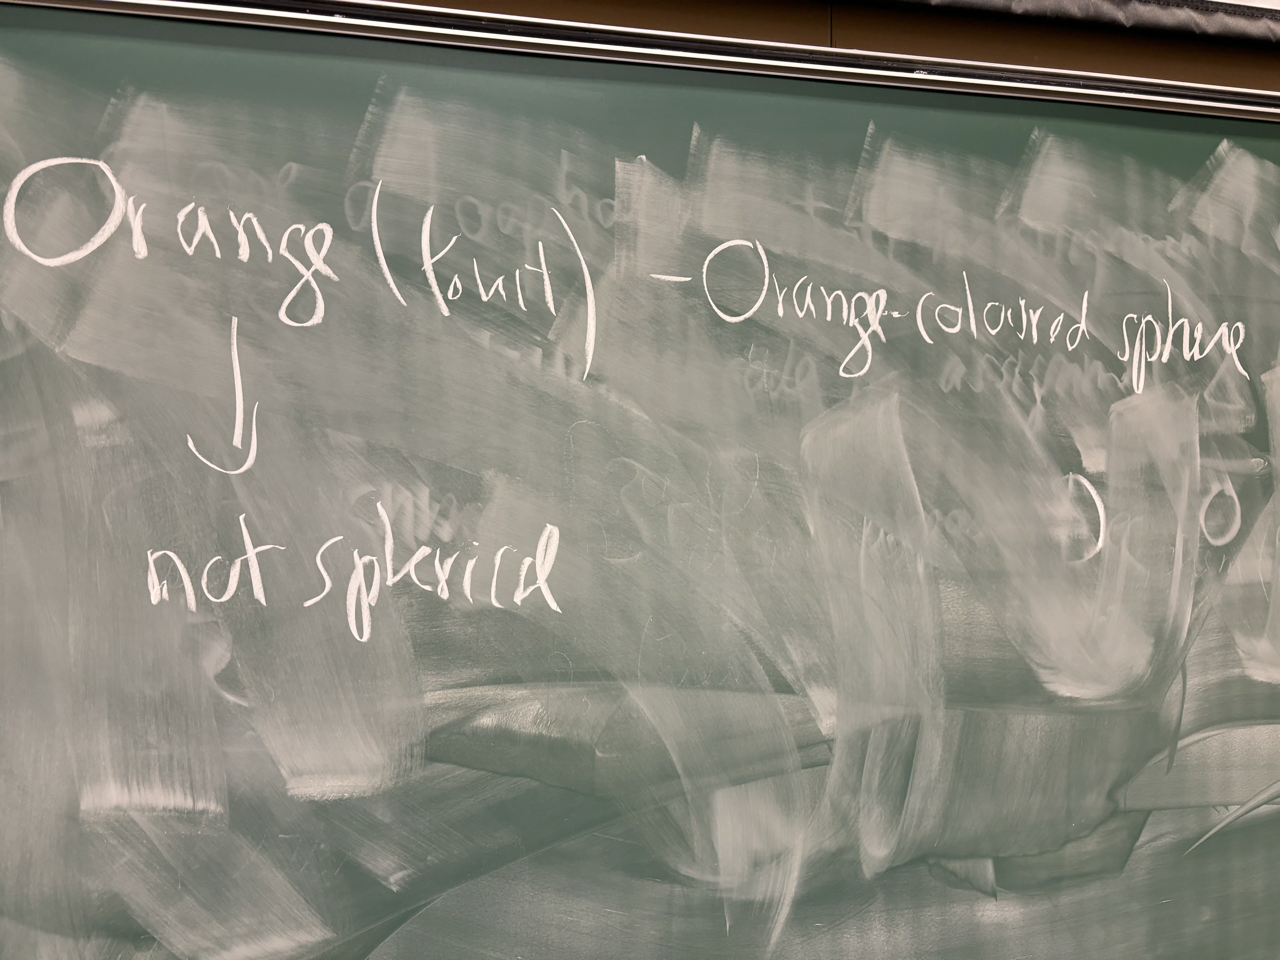 Orange (fruit) - Orange-coloured sphere
↓
not spherical